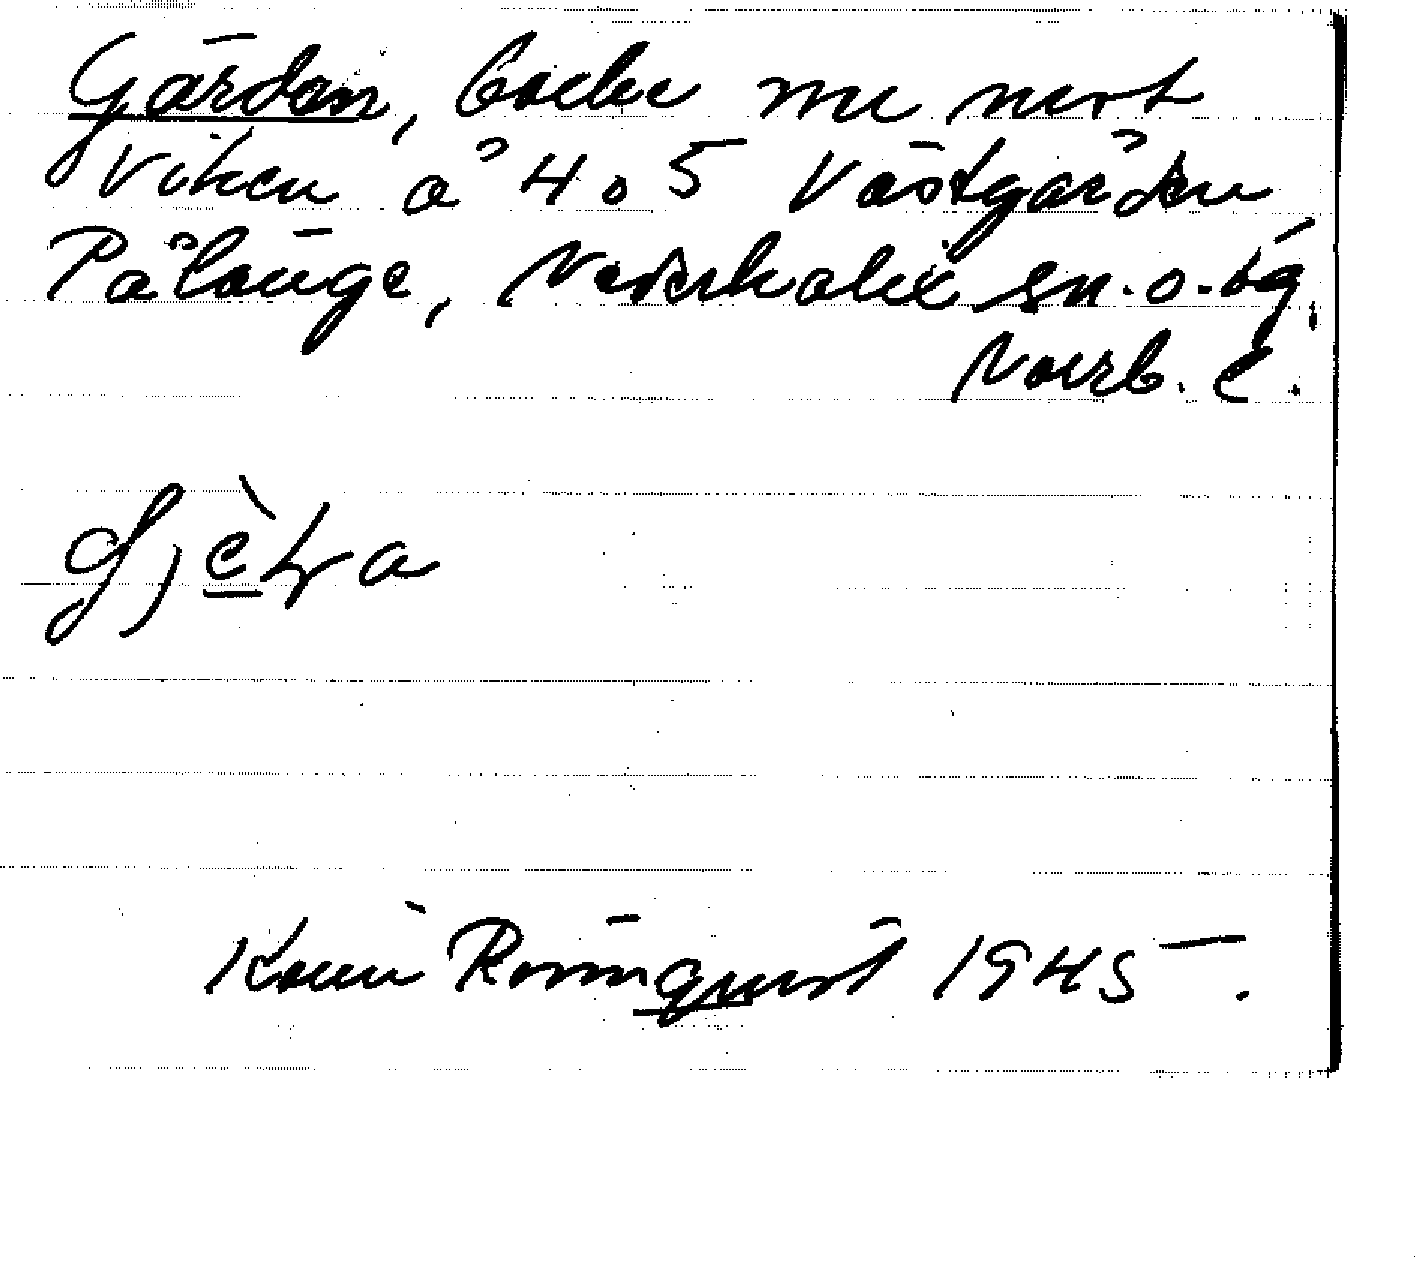 Gärdan, backe m m mot
viken å 4 o 5 Västgården
Pålänge, Nederkalix sn. o. tg,
Norrb. l.
Karin Rönnquist 1945.